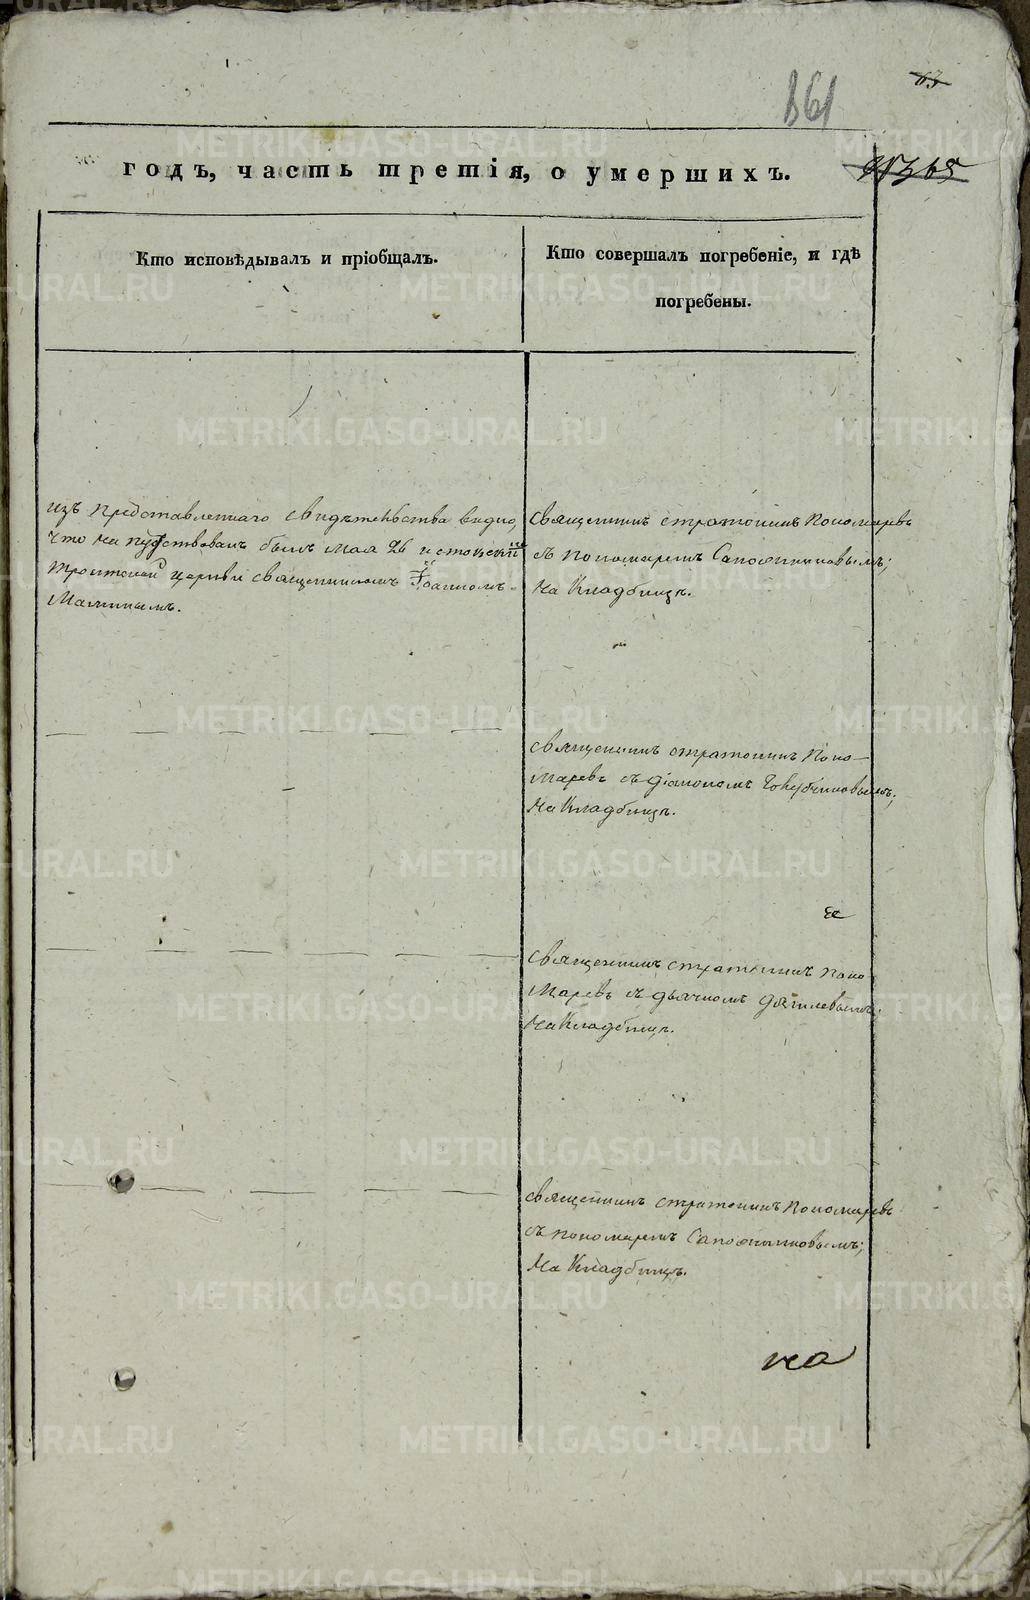 63
861
годъ, часть третія, о умершихъ.
Кто исповѣдывалъ и пріобщалъ.
Кто совершалъ погребеніе, и гдѣ
погребены.
изъ представленнаго свидѣтельства видно,
что напутствованъ былъ мая 26 истокской
Троитской церкви священникомъ Іоанномъ
Маминымъ.
священникъ стратоникъ Пономаревъ
съ пономаремъ Сапожниковымъ;
на Кладбищѣ.
священникъ стратоникъ Поно-
маревъ съ діакономъ
на Кладбищѣ.
священникъ стратоникъ Поно
маревъ съ дьячкомъ Дягилевымъ;
на Кладбищѣ.
священникъ стратоникъ Пономаревъ
съ пономаремъ Сапожниковымъ;
на Кладбищѣ.
на
METRIKI.GASO-URAL.RU